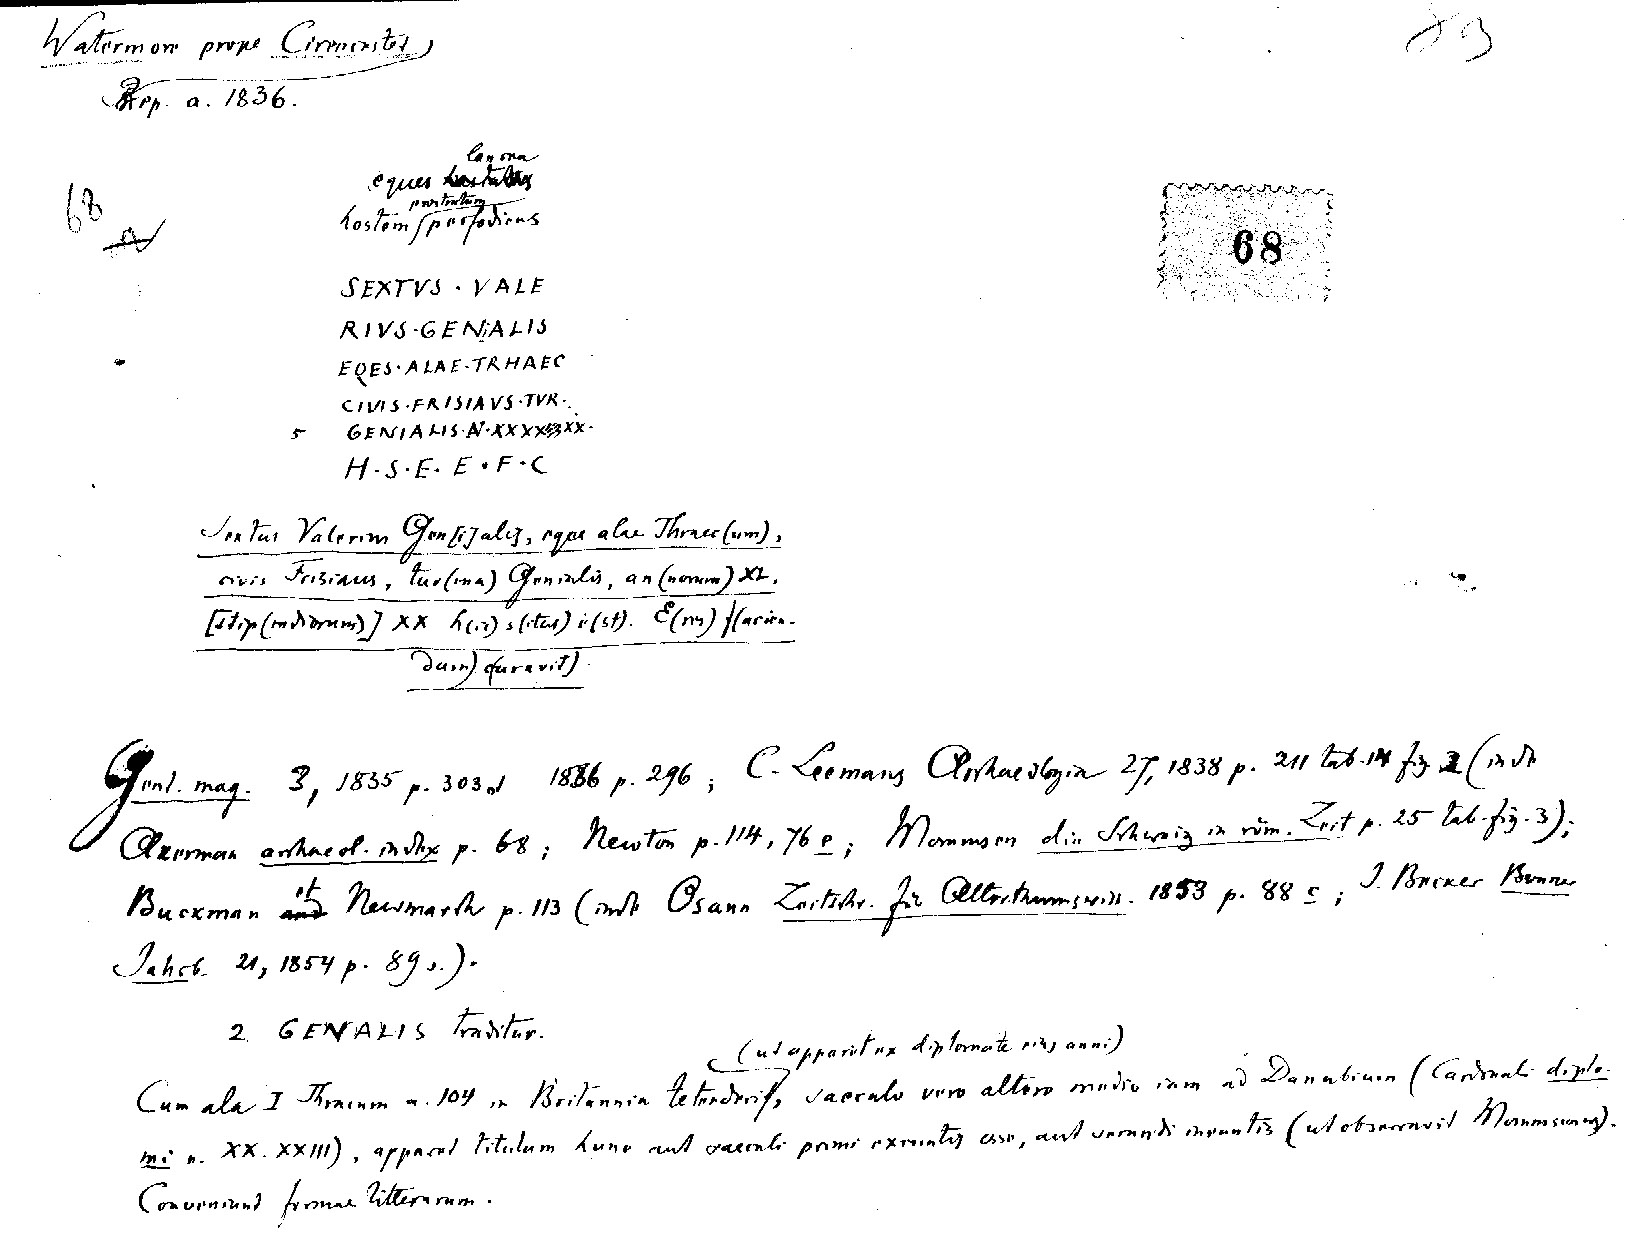 Watermore prope Cirencester
83
Rep. a. 1836.
lancea
eques
prostratum
hostem perfodiens
68
68
SEXTVS · VALE
RIVS · GENIALIS
EQES · ALAE · TRHAEC
CIVIS · FRISIAVS · TVR ·
5 GENIALIS · N · XXXX XX ·
H · S · E · E · F · C
Sextus Valerius Gen[i]alis, eques alae Thraec(um),
civis Frisiaus, tur(ma) Genialis, an(norum) XL,
[stip(endiorum)] XX h(ic) s(itus) e(st). E(res) f(acien-
dum) c(uravit)
Gent. mag. 3, 1835 p. 303 1836 p. 296; C. Leemans Archaeologia 27, 1838 p. 211 tab. 14 fig 2 (inde
Akerman archaeol. index p. 68; Newton p. 114, 76 e; Mommsen die Schweiz in röm. Zeit p. 25 tab. fig. 3);
Buckman et Newmarch p. 113 (inde Osann Zeitschr. für Alterthumswiss. 1853 p. 88 c; J. Becker Bonner
Jahrb. 21, 1854 p. 89 s.).
2 GENALIS traditur.
(ut apparet ex diplomate eius anni)
Cum ala I Thracum a. 104 in Britannia tetenderit, saeculo vero altero medio iam ad Danubium (Cardinali diplo-
mi n. XX. XXIII), apparet titulum hunc aut saeculi primi exeuntis esse, aut secundi ineuntis (ut observavit Mommsenus).
Conveniunt formae litterarum.